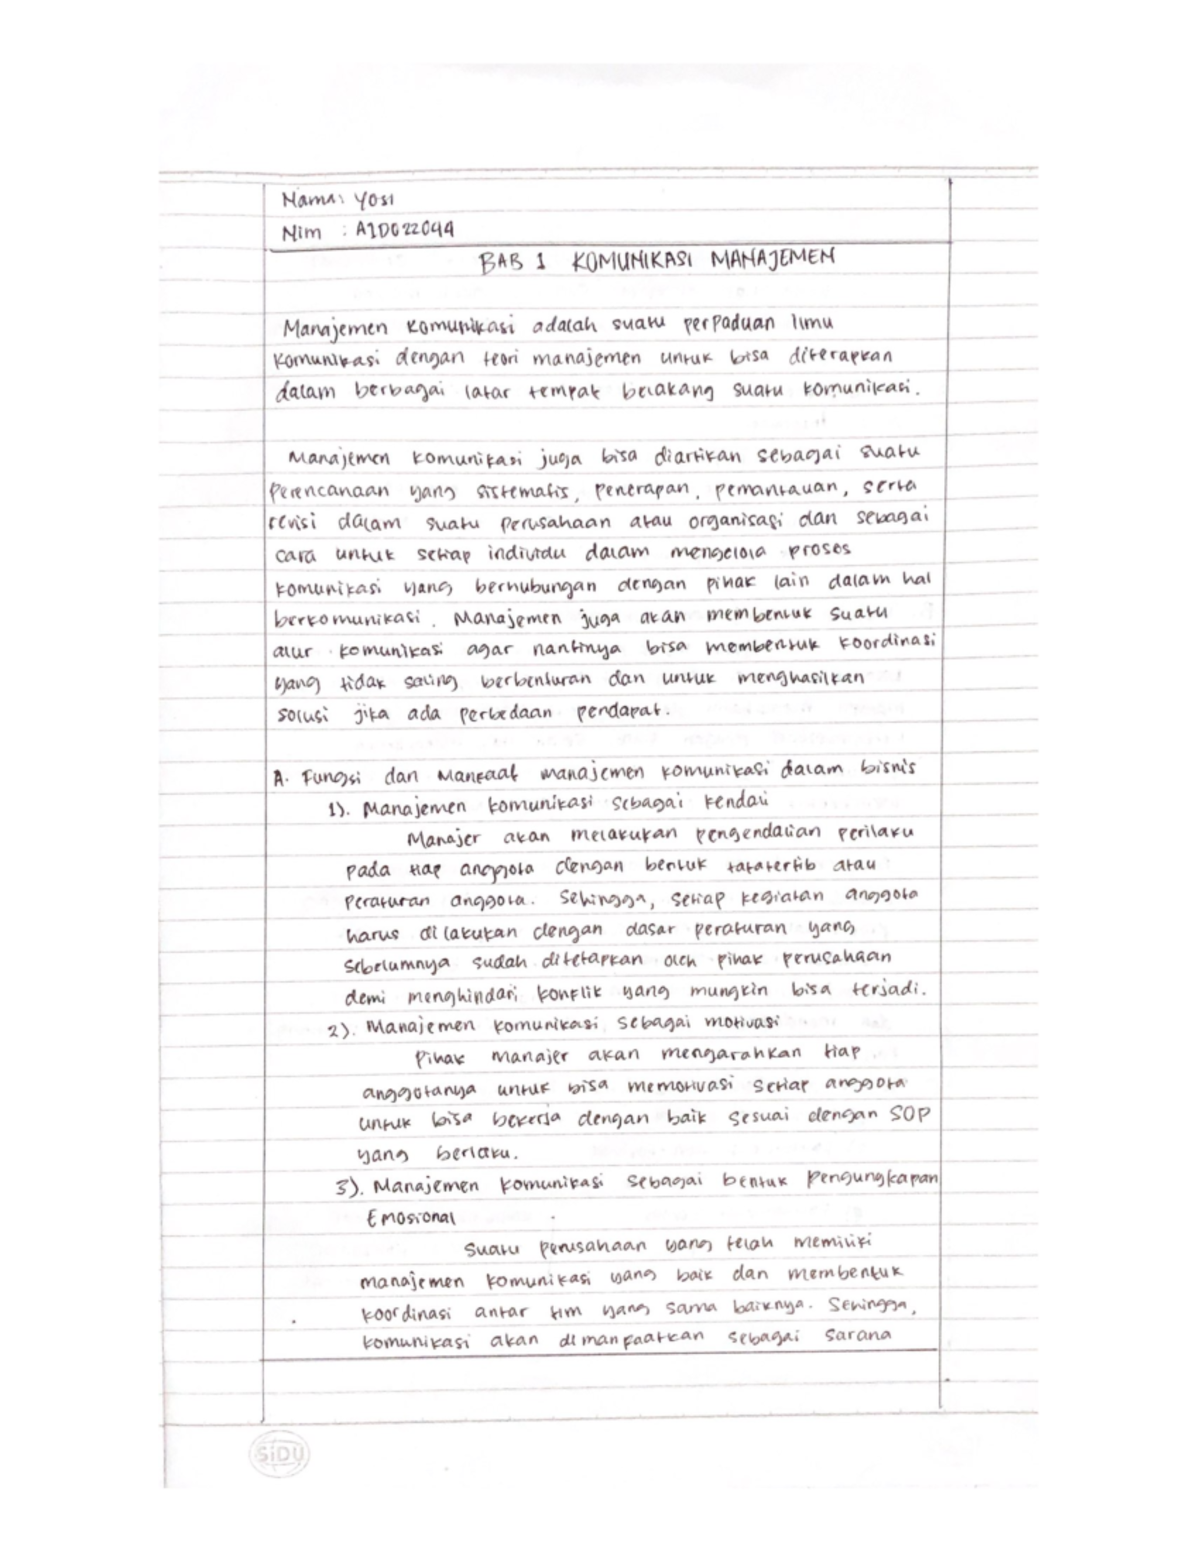 Nama: Yosi
Nim : A1D022044
BAB 1 KOMUNIKASI MANAJEMEN
Manajemen komunikasi adalah suatu perpaduan ilmu
komunikasi dengan teori manajemen untuk bisa diterapkan
dalam berbagai latar tempat belakang suatu komunikasi.
Manajemen komunikasi juga bisa diartikan sebagai suatu
perencanaan yang sistematis, penerapan, pemantauan, serta
revisi dalam suatu perusahaan atau organisasi dan sebagai
cara untuk setiap individu dalam mengelola proses
komunikasi yang berhubungan dengan pihak lain dalam hal
berkomunikasi. Manajemen juga akan membentuk suatu
alur komunikasi agar nantinya bisa membentuk koordinasi
yang tidak saling berbenturan dan untuk menghasilkan
solusi jika ada perbedaan pendapat.
A. Fungsi dan Manfaat manajemen komunikasi dalam bisnis
1). Manajemen komunikasi sebagai kendali
Manajer akan melakukan pengendalian perilaku
pada tiap anggota dengan bentuk tatatertib atau
peraturan anggota. Sehingga, setiap kegiatan anggota
harus dilakukan dengan dasar peraturan yang
sebelumnya sudah ditetapkan oleh pihak perusahaan
demi menghindari konflik yang mungkin bisa terjadi.
2). Manajemen komunikasi sebagai motivasi
Pihak manajer akan mengarahkan tiap
anggotanya untuk bisa memotivasi setiap anggota
untuk bisa bekerja dengan baik sesuai dengan SOP
yang berlaku.
3). Manajemen komunikasi sebagai bentuk Pengungkapan
Emosional
Suatu perusahaan yang telah memiliki
manajemen komunikasi yang baik dan membentuk
koordinasi antar tim yang sama baiknya. Sehingga,
komunikasi akan dimanfaatkan sebagai sarana
SiDU